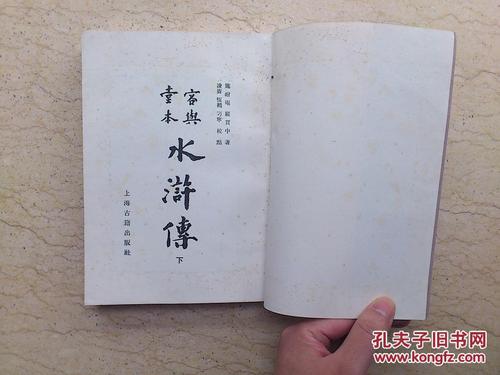 施耐庵 羅貫中 著
凌賡 恆鶴 刁寧 校點
容與
堂本
水滸傳
下
上海古籍出版社
孔夫子旧书网
www.kongfz.com